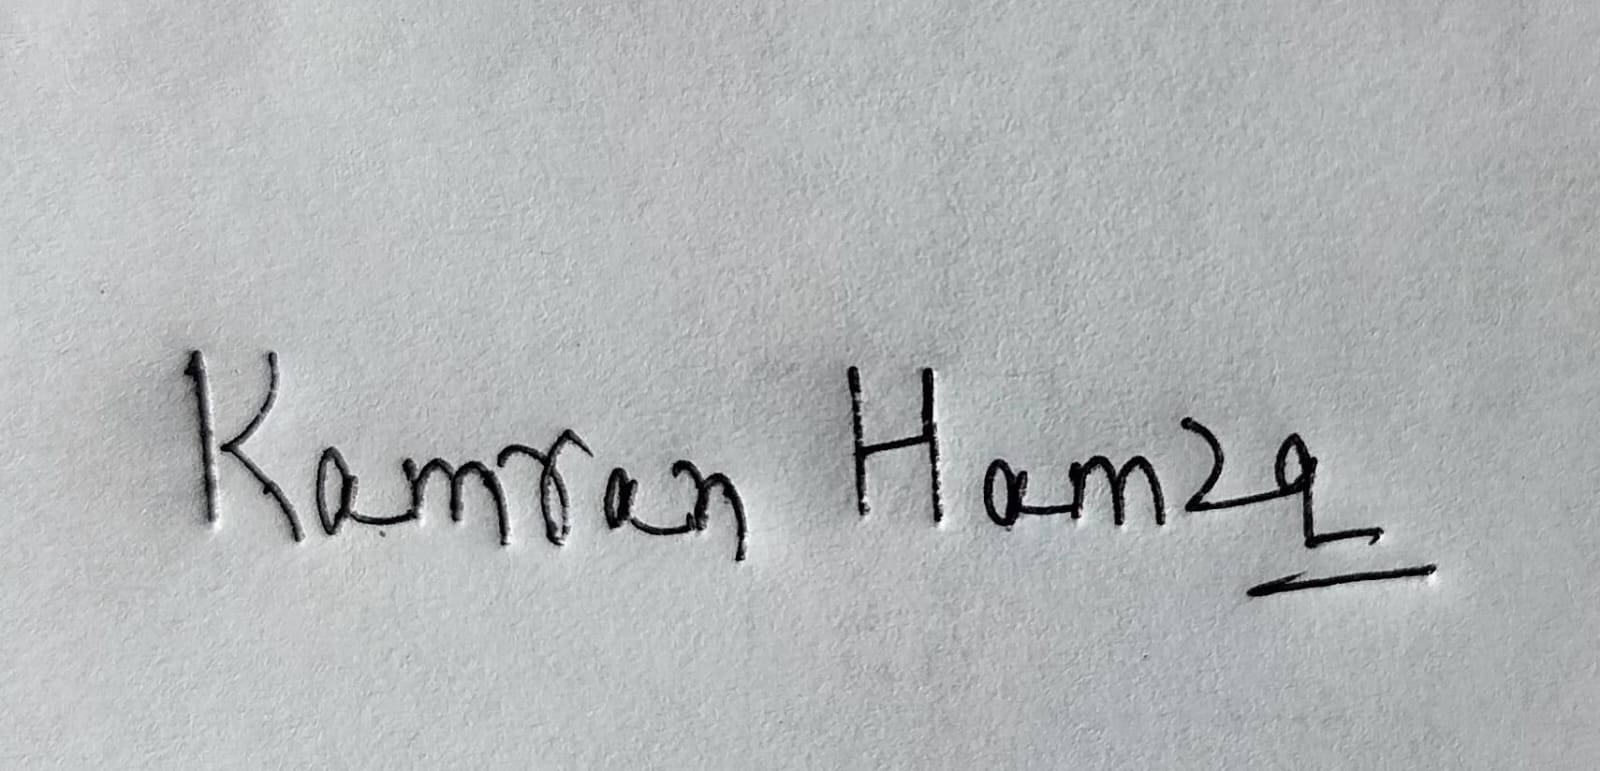 Kamran Hamza